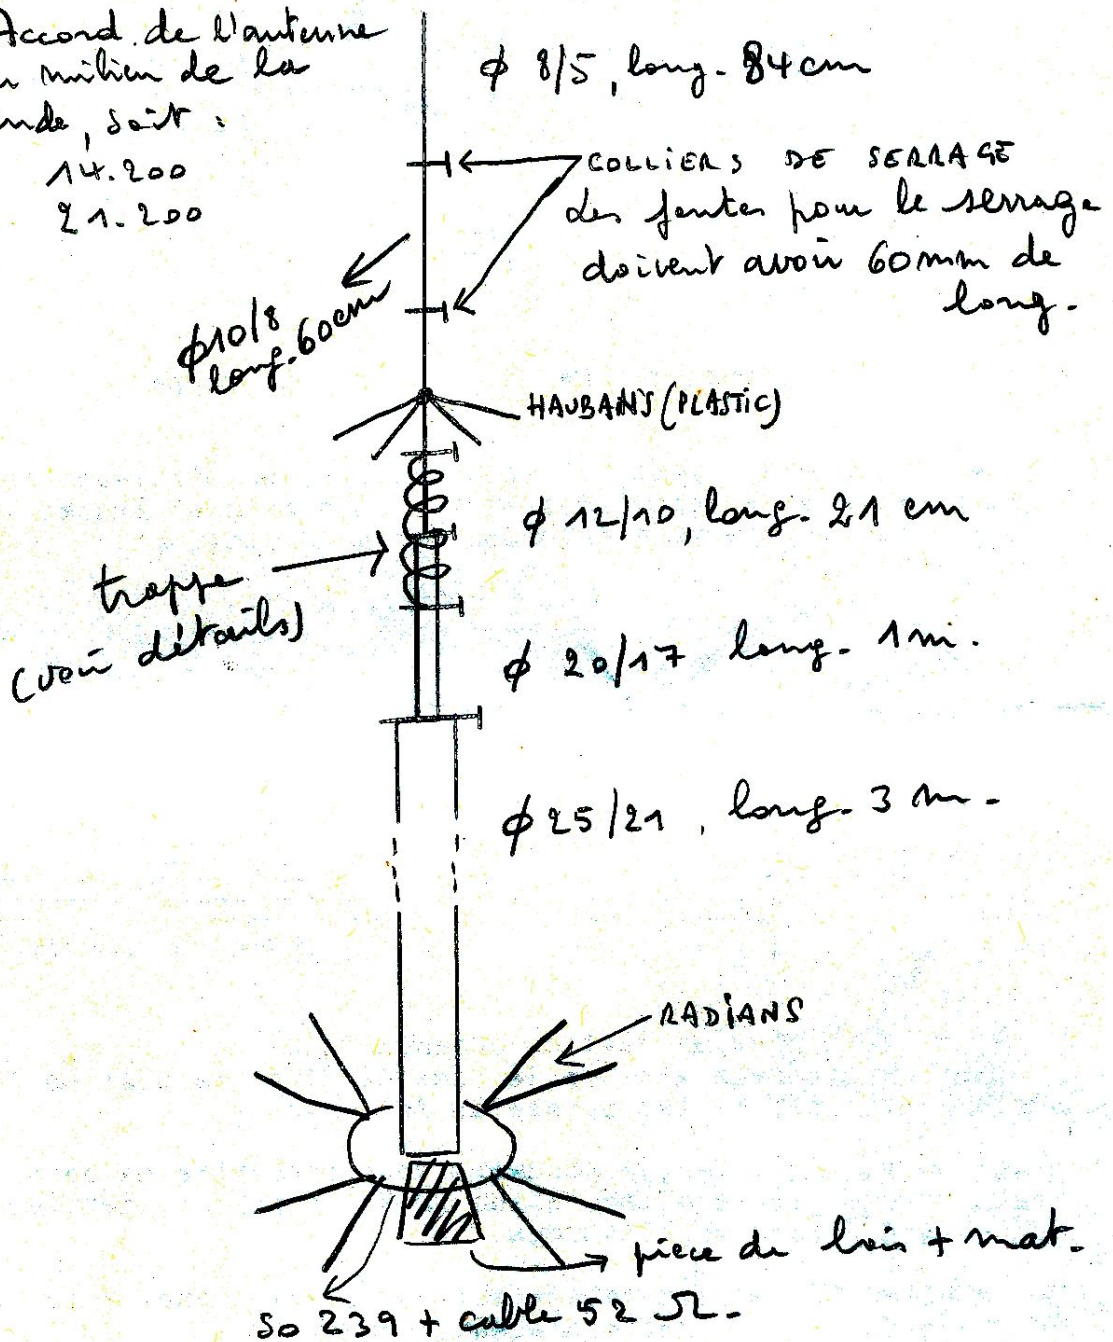 Accord de l'antenne
milieu de la
soit :
14.200
21.200
ϕ 8/5, long. 84cm
COLLIERS DE SERRAGE
Les fentes pour le serrage
doivent avoir 60mm de
long.
ϕ10/8
long. 60cm
HAUBANS (PLASTIC)
ϕ 12/10, long. 21 cm
trappe
(voir détails)
ϕ 20/17 long. 1m.
ϕ 25/21, long. 3 m.
RADIANS
pièce de bois + mat.
So 239 + cable 52 Ω.